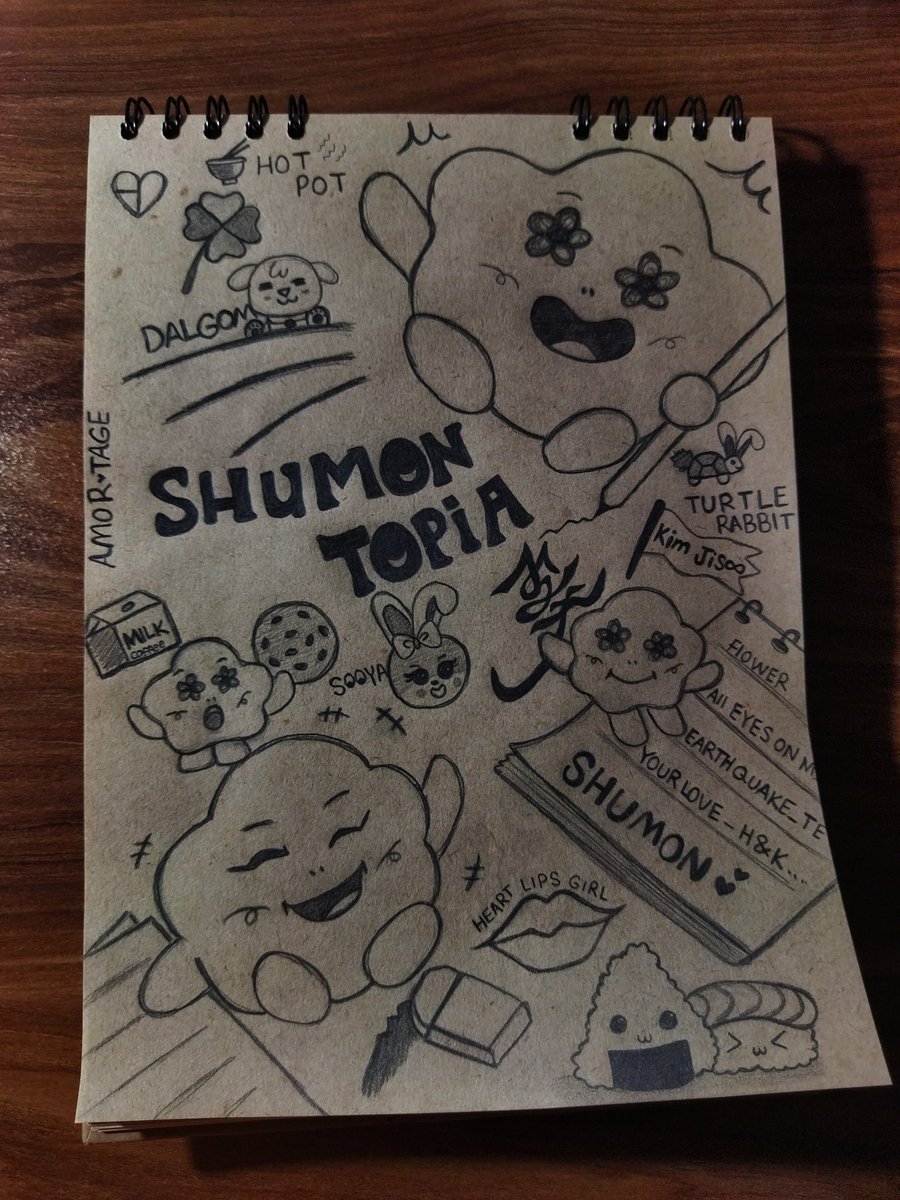 HOT
POT
DALGOM
AMOR♥TAGE
SHUMON
TOPiA
TURTLE
RABBIT
Kim Jisoo
MILK
COFFEE
SOOYA
FlOWER
All EYES ON M
EARTHQUAKE_TE
YOUR LOVE_ H&K....
SHUMON
HEART LIPS GIRL